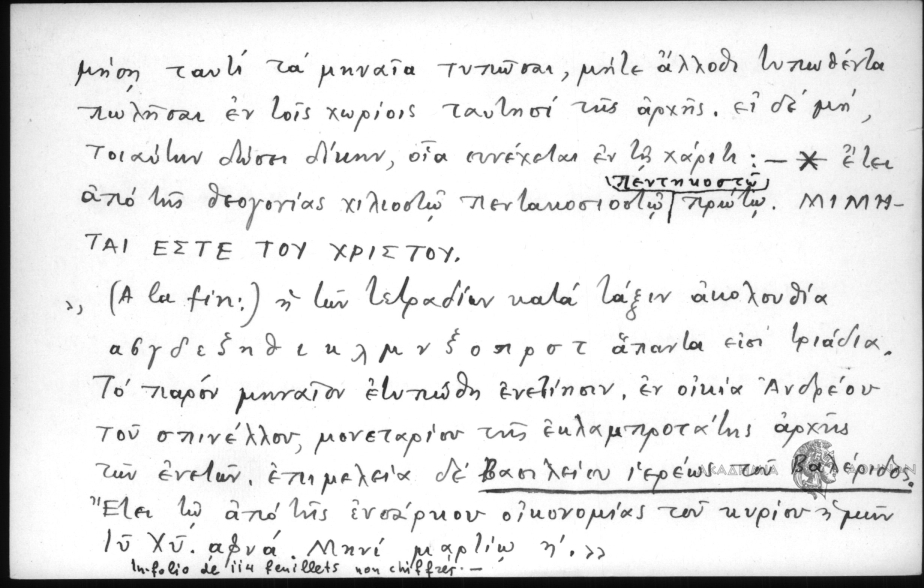 μήση ταυτί τά μηναῖα τυπῶσαι, μήτε ἄλλοθι τυπωθέντα
πωλῆσαι ἐν τοῖς χωρίοις ταυτησί τῆς ἀρχῆς. εἰ δέ μή,
τοιαύτην δώσει δίκην, οἵα συνέχεται ἐν τῇ χάριτι : — ἔτει
πεντηκοστῷ
ἀπό τῆς θεογονίας χιλιοστῷ πεντακοσιοστῷ πρώτῳ. ΜΙΜΗ–
ΤΑΙ ΕΣΤΕ ΤΟΥ ΧΡΙΣΤΟΥ.
» (A la fin:) ἡ τῶν τετραδίων κατά τάξιν ἀκολουθία
α β γ δ ε ξ η θ ι κ λ μ ν ξ ο π ρ σ τ ἅπαντα εἰσί τριάδια.
Τό παρόν μηναῖον ἐτυπώθη ἐνετίησιν, ἐν οἰκία Ἀνδρέου
τοῦ σπινέλλου, μονεταρίου τῆς ἐκλαμπροτάτης ἀρχῆς
τῶν ἐνετῶν. ἐπιμελεία δέ Βασιλείου ἱερέως τοῦ Βαλέριδος.
Ἔτει τῷ ἀπό τῆς ἐνσάρκου οἰκονομίας τοῦ κυρίου ἡμῶν
Ἰῦ Χῦ. αφνά. Μηνί μαρτίῳ η΄. »
In-folio de 114 feuillets non chiffrés. —